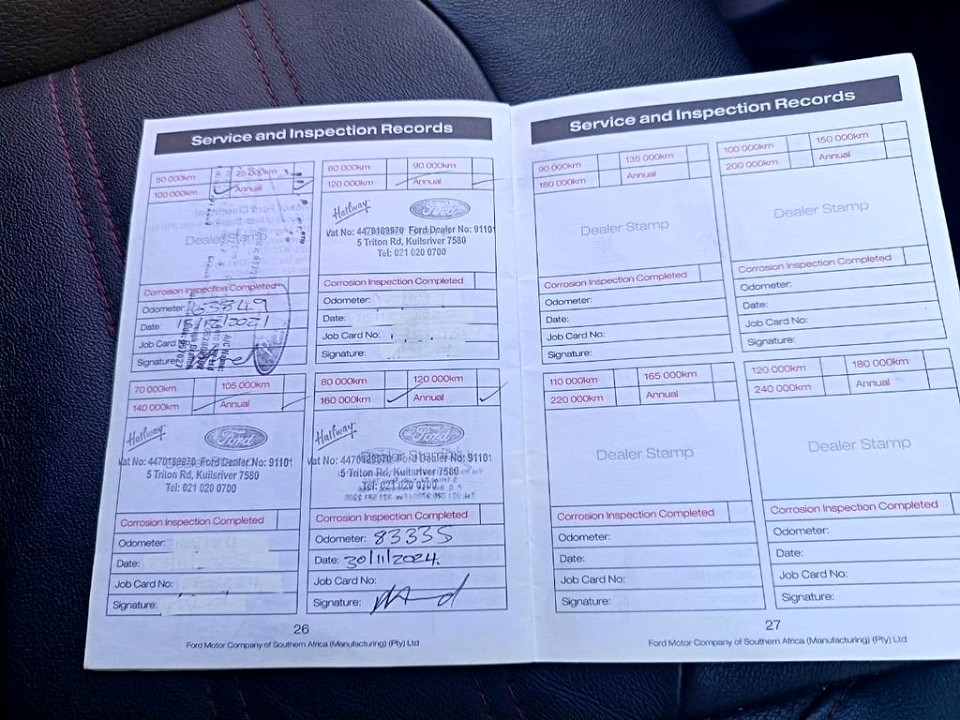 Service and Inspection Records
50 000km
100 000km Annual
Dealer Stamp
Corrosion Inspection Completed
Odometer:
Date: 2021
Job Card
Signature:
60 000km 90 000km
120 000km Annual
Halfway Ford
Vat No: 4470189970 Ford Dealer No: 91101
5 Triton Rd, Kuilsriver 7580
Tel: 021 020 0700
Corrosion Inspection Completed
Odometer:
Date:
Job Card No:
Signature:
70 000km 105 000km
140 000km Annual
Halfway Ford
Vat No: 4470189970 Ford Dealer No: 91101
5 Triton Rd, Kuilsriver 7580
Tel: 021 020 0700
Corrosion Inspection Completed
Odometer:
Date:
Job Card No:
Signature:
80 000km 120 000km
160 000km Annual
Halfway Ford
Vat No: 4470189970 Ford Dealer No: 91101
5 Triton Rd, Kuilsriver 7580
Tel: 021 020 0700
Corrosion Inspection Completed
Odometer: 83335
Date: 30/11/2024.
Job Card No:
Signature:
26
Ford Motor Company of Southern Africa (Manufacturing) (Pty) Ltd
Service and Inspection Records
90 000km 135 000km
180 000km Annual
Dealer Stamp
Corrosion Inspection Completed
Odometer:
Date:
Job Card No:
Signature:
100 000km 150 000km
200 000km Annual
Dealer Stamp
Corrosion Inspection Completed
Odometer:
Date:
Job Card No:
Signature:
110 000km 165 000km
220 000km Annual
Dealer Stamp
Corrosion Inspection Completed
Odometer:
Date:
Job Card No:
Signature:
120 000km 180 000km
240 000km Annual
Dealer Stamp
Corrosion Inspection Completed
Odometer:
Date:
Job Card No:
Signature:
27
Ford Motor Company of Southern Africa (Manufacturing) (Pty) Ltd